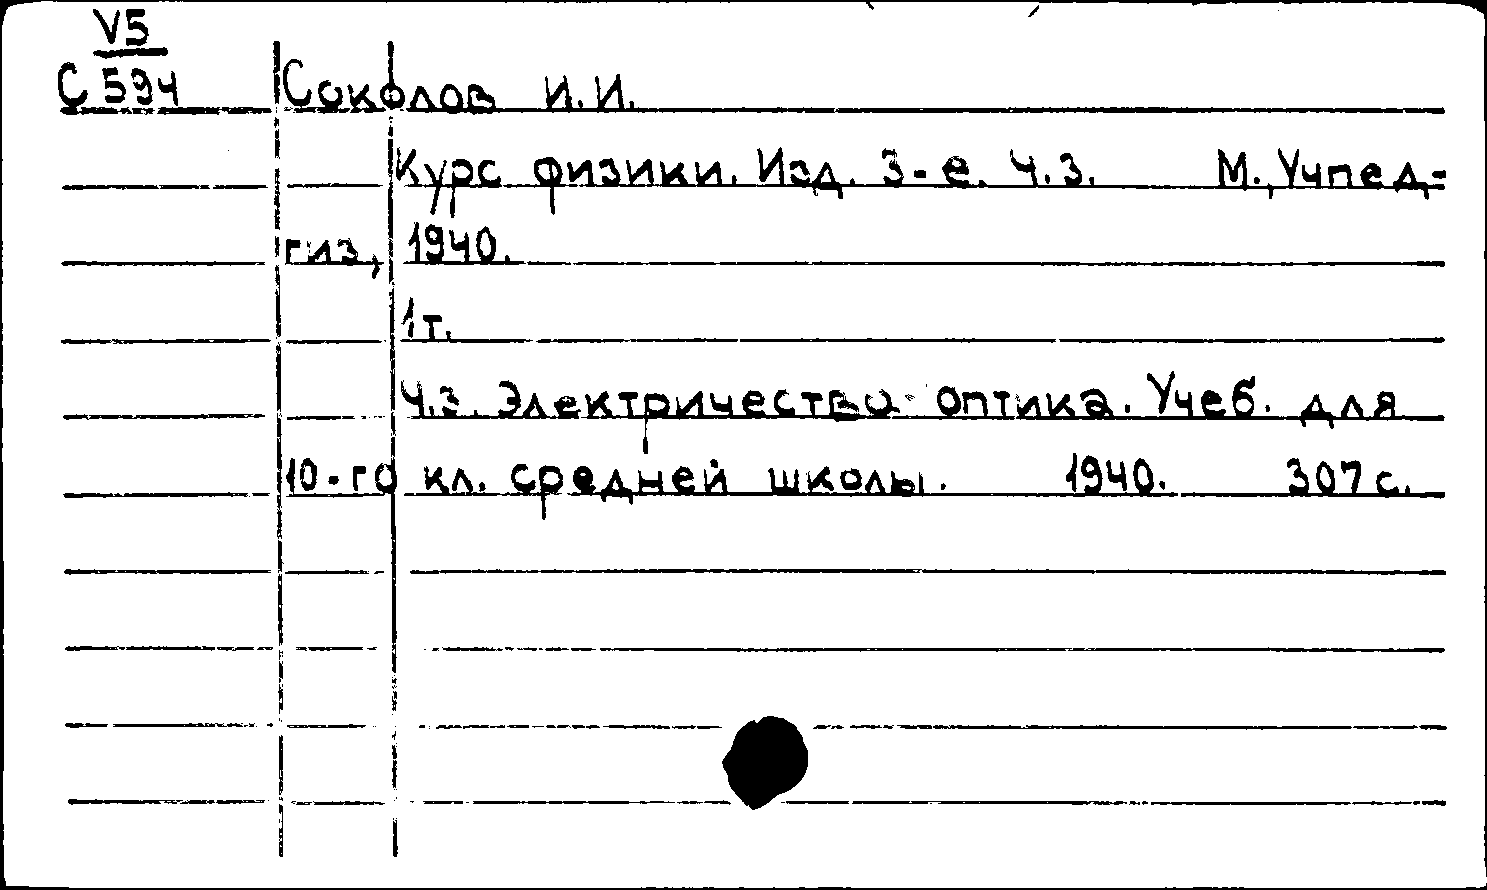 V5
С 594
Соколов И.И.
Курс физики. Изд. 3-е. Ч.3. М., Учпед-
гиз, 1940.
1т.
Ч.3. Электричество оптика. Учеб. для
10-го кл. средней школы. 1940. 307 с.